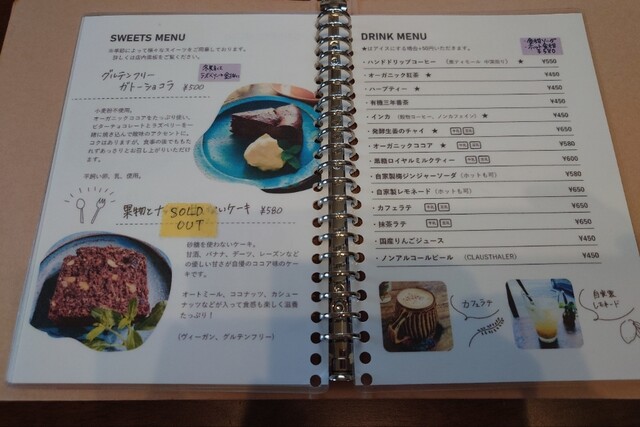 SWEETS MENU
※季節によって様々なスイーツをご用意しております。
詳しくは店内黒板をご覧ください。
グルテンフリー
ガトーショコラ ¥500
小麦粉不使用。
オーガニックココアをたっぷり使い、
ビターチョコレートとラズベリーを一
緒に焼き込んで酸味のアクセントに。
コクはありますが、食事の後でももた
れずあっさりとお召し上がりいただけ
ます。
平飼い卵、乳、使用。
果物と
SOLD
OUT
いケーキ ¥580
砂糖を使わないケーキ。
甘酒、バナナ、デーツ、レーズンなど
の優しい甘さが自慢のココア味のケー
キです。
オートミール、ココナッツ、カシュー
ナッツなどが入って食感も楽しく滋養
たっぷり!
(ヴィーガン、グルテンフリー)
DRINK MENU
★はアイスにする場合+50円いただきます。
¥580
・ハンドドリップコーヒー (東ティモール 中深煎り) ★ ¥550
・オーガニック紅茶 ★ ¥450
・ハーブティー ★ ¥450
・有機三年番茶 ¥450
・インカ (穀物コーヒー、ノンカフェイン) ★ ¥450
・発酵生姜のチャイ ★ ¥650
・オーガニックココア ★ ¥580
・黒糖ロイヤルミルクティー ¥600
・自家製梅ジンジャーソーダ (ホットも可) ¥580
・自家製レモネード (ホットも可) ¥650
・カフェラテ ¥650
・抹茶ラテ ¥650
・国産りんごジュース ¥450
・ノンアルコールビール (CLAUSTHALER) ¥450
カフェラテ
自家製
レモネード